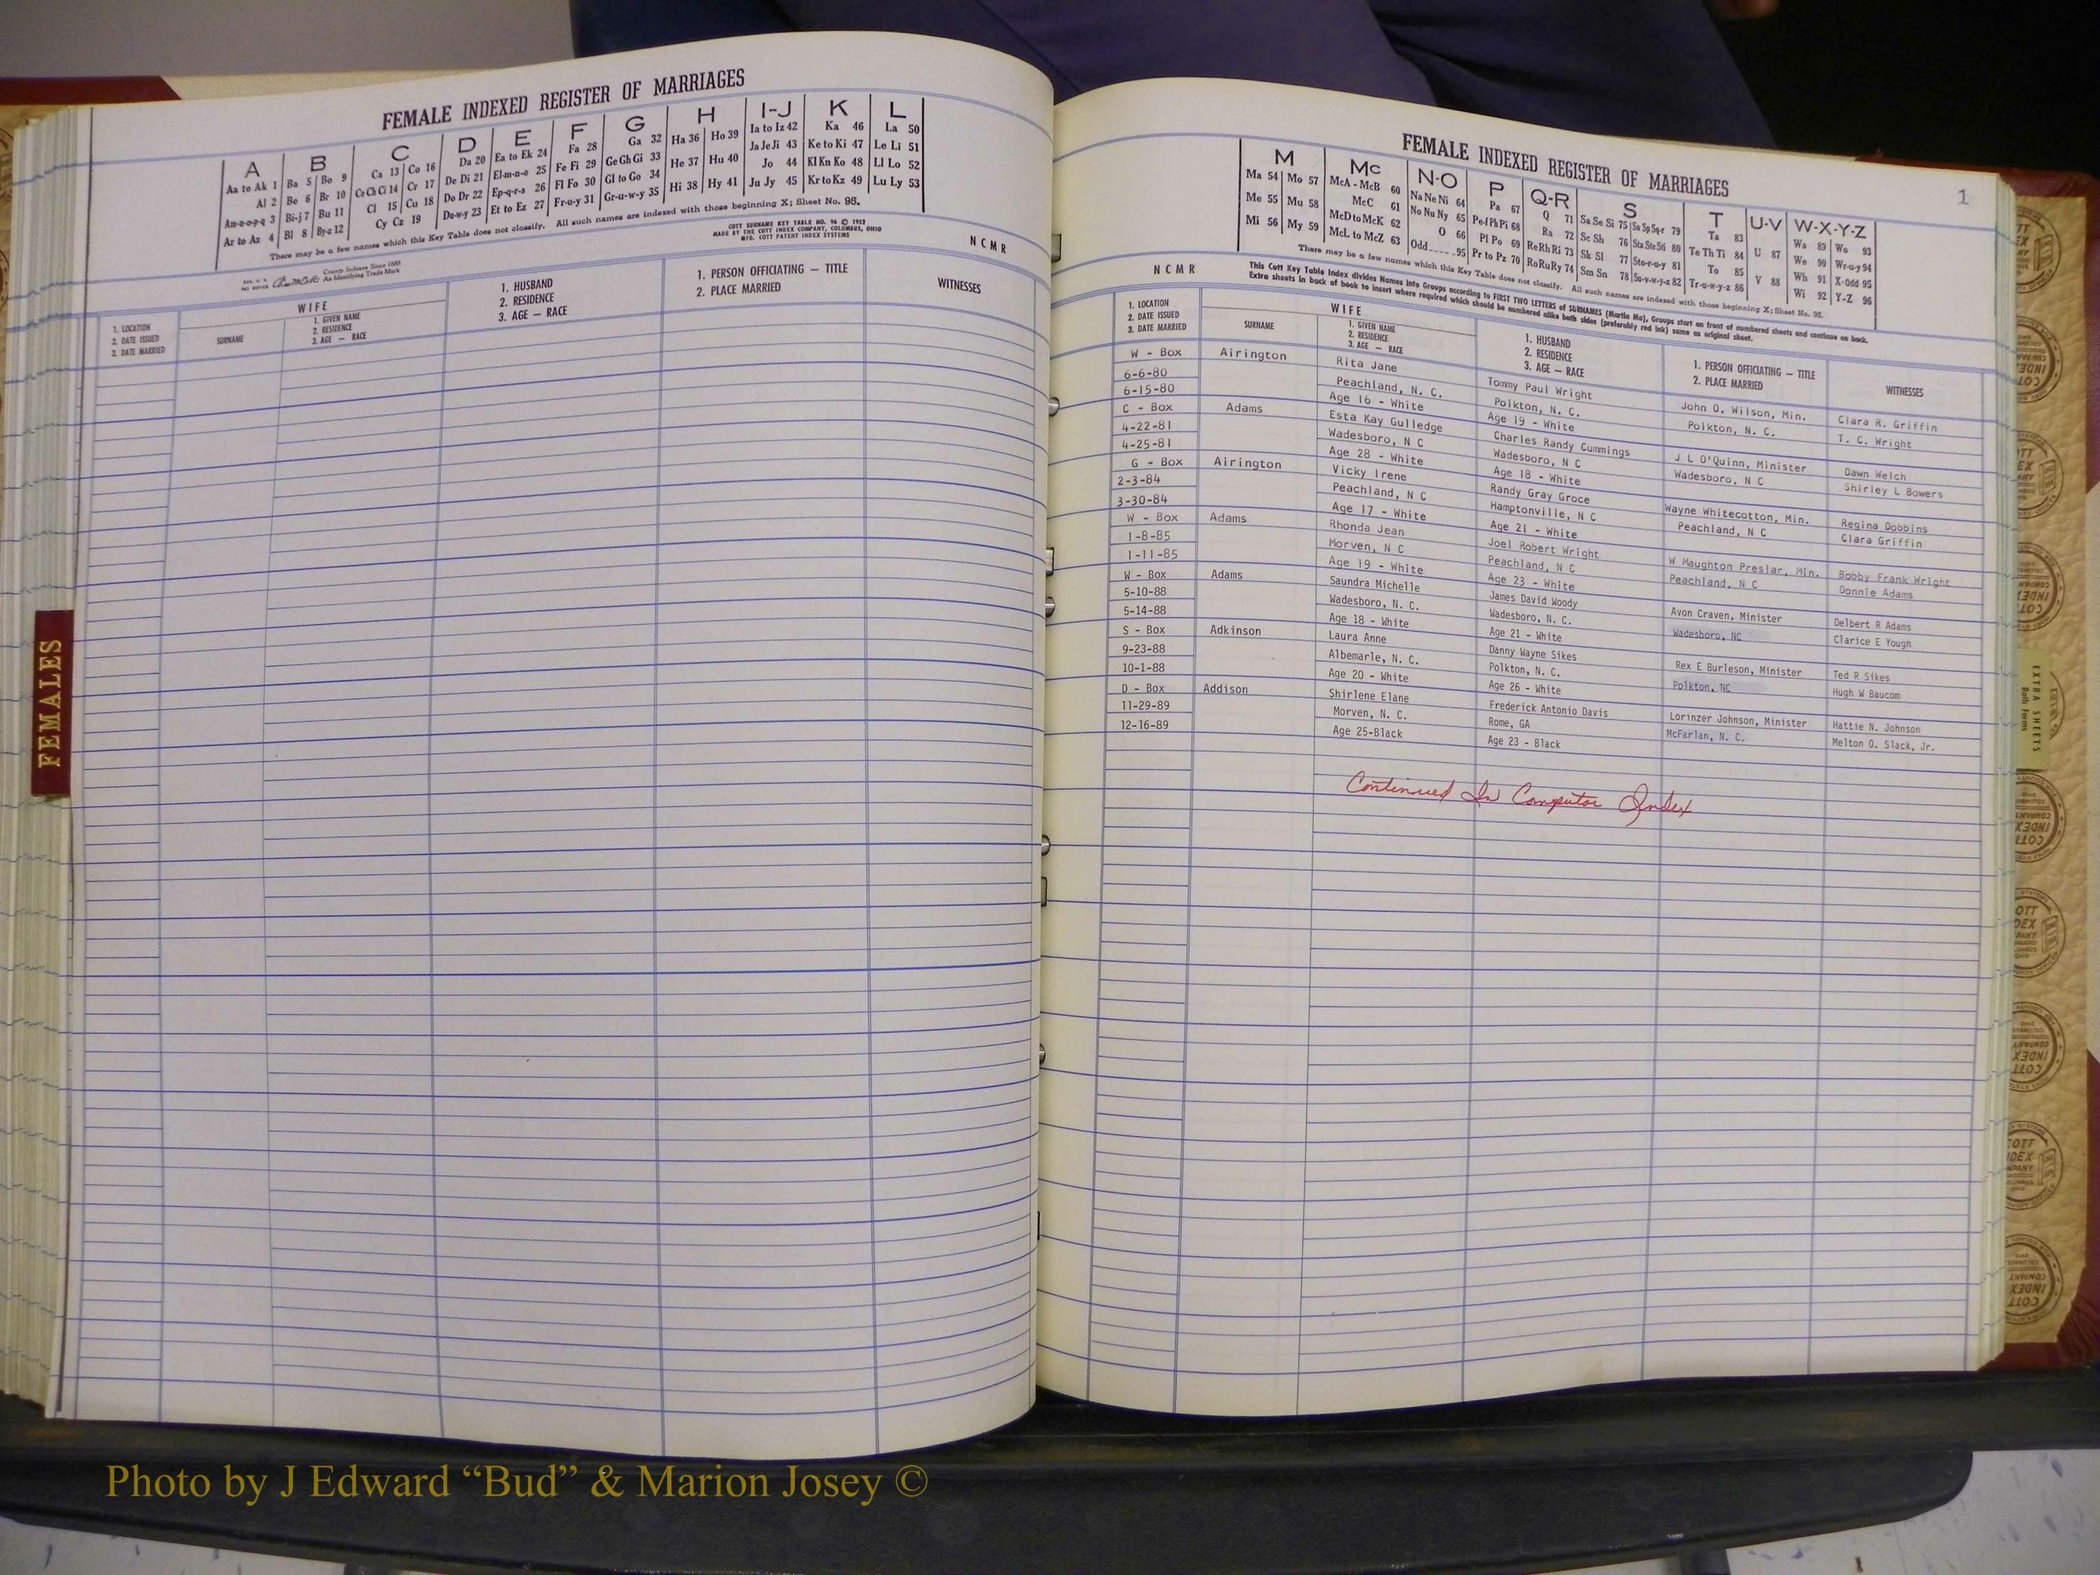 FEMALE INDEXED REGISTER OF MARRIAGES
A B C D E F G H I-J K L
Aa to Ak 1 Ba 5 Bo 9 Ca 13 Co 16 Da 20 Ea to Ek 24 Fa 28 Ga 32 Ha 36 Ho 39 Ia to Iz 42 Ka 46 La 50
Al 2 Be 6 Br 10 Ce Ch Ci 14 Cr 17 De Di 21 El-m-n-o 25 Fe Fi 29 Ge Gh Gi 33 He 37 Hu 40 Ja Je Ji 43 Ke to Ki 47 Le Li 51
Am-n-o-p-q 3 Bi-j 7 Bu 11 Cl 15 Cu 18 Do Dr 22 Ep-q-r-s 26 Fl Fo 30 Gl to Go 34 Hi 38 Hy 41 Jo 44 Kl Kn Ko 48 Ll Lo 52
Ar to Az 4 Bl 8 By-z 12 Cy Cz 19 Du-w-y 23 Et to Ez 27 Fr-u-y 31 Gr-u-w-y 35 Ju Jy 45 Kr to Kz 49 Lu Ly 53
There may be a few names which this Key Table does not classify. All such names are indexed with those beginning X; Sheet No. 95.
COTT SURNAME KEY TABLE NO. 96 © 1952
MADE BY THE COTT INDEX COMPANY, COLUMBUS, OHIO
MFG. COTT PATENT INDEX SYSTEMS
NCMR
County Indexes Since 1888
An Identifying Trade Mark
1. LOCATION
2. DATE ISSUED
3. DATE MARRIED
WIFE
SURNAME
1. GIVEN NAME
2. RESIDENCE
3. AGE — RACE
1. HUSBAND
2. RESIDENCE
3. AGE — RACE
1. PERSON OFFICIATING — TITLE
2. PLACE MARRIED
WITNESSES
FEMALES
FEMALE INDEXED REGISTER OF MARRIAGES
1
M Mc N-O P Q-R S T U-V W-X-Y-Z
Ma 54 Mo 57 McA - McB 60 Na Ne Ni 64 Pa 67 Q 71 Sa Se Si 75 So Sp Sq-r 79 Ta 83 U 87 Wa 89 Wo 93
Me 55 Mu 58 McC 61 No Nu Ny 65 Pe-f Ph Pi 68 Ra 72 Sc Sh 76 Sta Ste Sti 80 Te Th Ti 84 V 88 We 90 Wr-u-y 94
Mi 56 My 59 McD to McK 62 O 66 Pl Po 69 Re Rh Ri 73 Sk Sl 77 Sto-r-u-y 81 To 85 Wh 91 X-Odd 95
McL to McZ 63 Odd 95 Pr to Pz 70 Ro Ru Ry 74 Sm Sn 78 Su-v-w-y-z 82 Tr-u-w-y-z 86 Wi 92 Y-Z 96
There may be a few names which this Key Table does not classify. All such names are indexed with those beginning X; Sheet No. 95.
NCMR
This Cott Key Table Index divides Names into Groups according to FIRST TWO LETTERS of SURNAMES (Martin Ma), Groups start on front of numbered sheets and continue on back.
Extra sheets in back of book to insert where required which should be numbered alike both sides (preferably red ink) same as original sheet.
1. LOCATION
2. DATE ISSUED
3. DATE MARRIED
WIFE
SURNAME
1. GIVEN NAME
2. RESIDENCE
3. AGE — RACE
1. HUSBAND
2. RESIDENCE
3. AGE — RACE
1. PERSON OFFICIATING — TITLE
2. PLACE MARRIED
WITNESSES
W - Box Airington Rita Jane Tommy Paul Wright John O. Wilson, Min. Clara R. Griffin
6-6-80 Peachland, N. C. Polkton, N. C. Polkton, N. C. T. C. Wright
6-15-80 Age 16 - White Age 19 - White
C - Box Adams Esta Kay Gulledge Charles Randy Cummings J L O'Quinn, Minister Dawn Welch
4-22-81 Wadesboro, N C Wadesboro, N C Wadesboro, N C Shirley L Bowers
4-25-81 Age 28 - White Age 18 - White
G - Box Airington Vicky Irene Randy Gray Groce Wayne Whitecotton, Min. Regina Dobbins
2-3-84 Peachland, N C Hamptonville, N C Peachland, N C Clara Griffin
3-30-84 Age 17 - White Age 21 - White
W - Box Adams Rhonda Jean Joel Robert Wright W Maughton Preslar, Min. Bobby Frank Wright
1-8-85 Morven, N C Peachland, N C Peachland, N C Donnie Adams
1-11-85 Age 19 - White Age 23 - White
W - Box Adams Saundra Michelle James David Woody Avon Craven, Minister Delbert R Adams
5-10-88 Wadesboro, N. C. Wadesboro, N. C. Wadesboro, NC Clarice E Yough
5-14-88 Age 18 - White Age 21 - White
S - Box Adkinson Laura Anne Danny Wayne Sikes Rex E Burleson, Minister Ted R Sikes
9-23-88 Albemarle, N. C. Polkton, N. C. Polkton, NC Hugh W Baucom
10-1-88 Age 20 - White Age 26 - White
D - Box Addison Shirlene Elane Frederick Antonio Davis Lorinzer Johnson, Minister Hattie N. Johnson
11-29-89 Morven, N. C. Rome, GA McFarlan, N. C. Melton O. Slack, Jr.
12-16-89 Age 25-Black Age 23 - Black
Continued In Computor Index
EXTRA SHEETS
Both Forms
COTT
INDEX
COMPANY
COLUMBUS
OHIO
Photo by J Edward “Bud” & Marion Josey ©